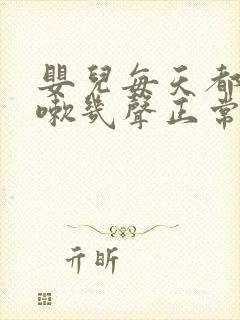 嬰兒每天都
嗽幾聲正常
亓昕